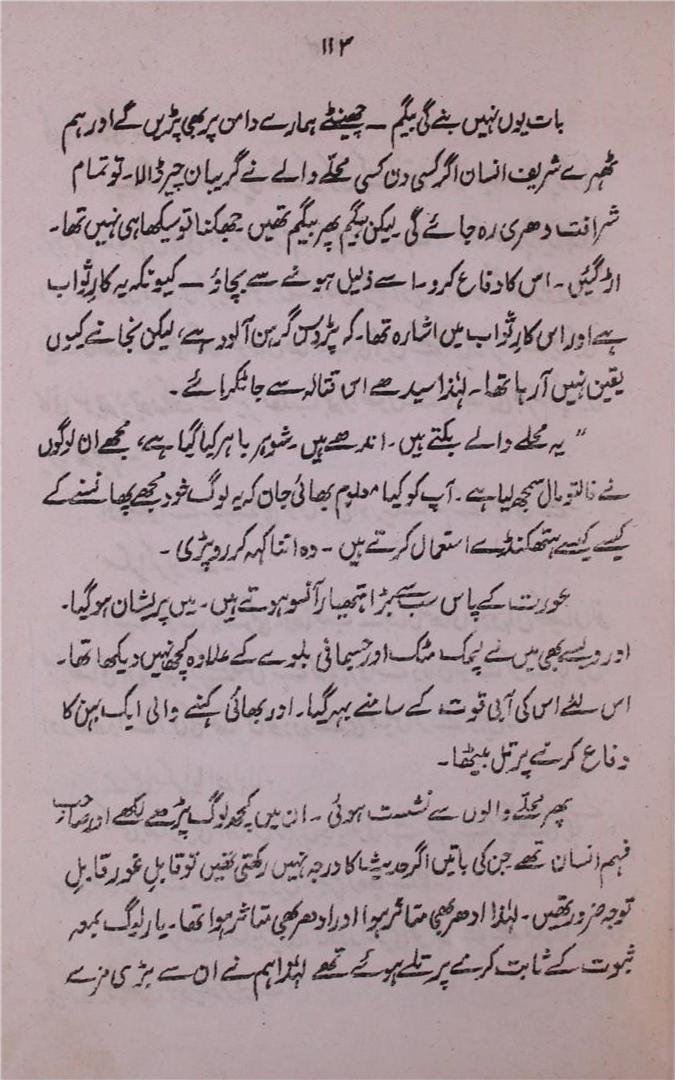 ۱۱۳
بات یوں نہیں بنے گی بیگم ۔ چھینٹے ہمارے دامن پر بھی پڑیں گے اور ہم
ٹھہرے شریف انسان اگر کسی دن کسی محلے والے نے گریبان چیر ڈالا۔ تو تمام
شرافت دھری رہ جائے گی۔ لیکن بیگم پھر بیگم تھیں جھکنا تو سیکھا ہی نہیں تھا۔
اڑ گئیں ۔ اس کا دفاع کرو۔ اسے ذلیل ہونے سے بچاؤ ۔ کیونکہ یہ کارِ ثواب
ہے اور اس کارِ ثواب میں اشارہ تھا۔ کہ پڑوس گرہن آلود ہے، لیکن نجانے کیوں
یقین نہیں آ رہا تھا۔ لہٰذا سیدھے اس قتالہ سے جا ٹکرائے ۔
" یہ محلے والے بکتے ہیں۔ اندھے ہیں۔ شوہر باہر کیا گیا ہے، مجھے ان لوگوں
نے فالتو مال سمجھ لیا ہے ۔ آپ کو کیا معلوم بھائی جان کہ یہ لوگ خود مجھے پھانسنے کے
کیسے کیسے ہتھکنڈے استعمال کرتے ہیں ۔ وہ اتنا کہہ کر رو پڑی ۔
عورت کے پاس سب سے بڑا ہتھیار آنسو ہوتے ہیں۔ میں پریشان ہو گیا۔
اور ویسے بھی میں نے چمک مٹک اور جسمانی بلوے کے علاوہ کچھ نہیں دیکھا تھا۔
اس لئے اس کی آبی قوت کے سامنے بہہ گیا۔ اور بھائی کہنے والی ایک بہن کا
دفاع کرنے پر تل بیٹھا۔
پھر محلے والوں سے نشست ہوئی ۔ ان میں کچھ لوگ پڑھے لکھے اور صاحب
فہم انسان تھے جن کی باتیں اگر حدیث کا درجہ نہیں رکھتی تھیں تو قابلِ غور قابلِ
توجہ ضرور تھیں۔ لہٰذا ادھر بھی متاثر ہوا اور ادھر بھی متاثر ہوا تھا۔ یار لوگ بمعہ
ثبوت کے ثابت کرنے پر تلے ہوئے تھے لہٰذا ہم نے ان سے بڑی مزے